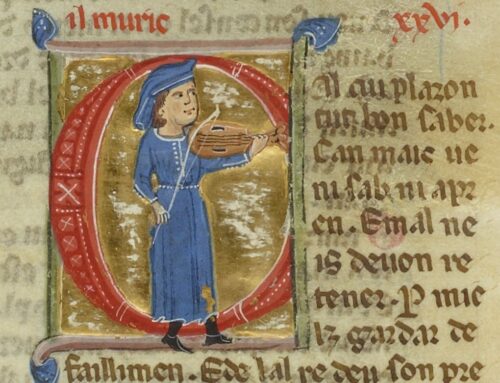 il muric xxvi.
Al cui plazon
tut bon saber.
San maic ue
ni sab ni apr
en. E mal ne
is deu on re
tener. P mie
lz gardar de
faillimen. E de lal re deu hon pre